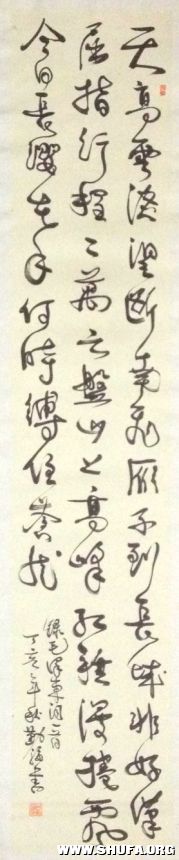 天高雲淡望断南飛雁不到長城非好漢
屈指行程二萬六盤山上高峰红旗漫捲西風
今日長纓在手何時縛住蒼龙
録毛澤東詞一首
丁亥年秋勤書
WWW.SHUFA.ORG